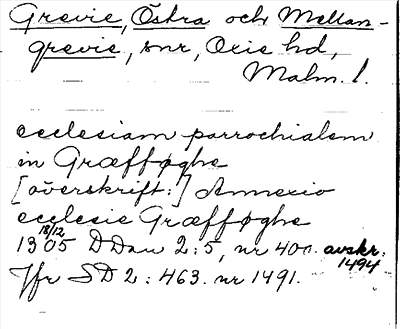 Grevie, Östra och Mellan-
grevie, snr, Oxie hd,
Malm. l.
ecclesiam parrochialem
in Græfføghe
[överskrift:] Annexio
ecclesie Græfføghe
13 18/12 05 DDan 2:5, nr 400. avskr. 1494
Jfr SD 2: 463. nr 1491.